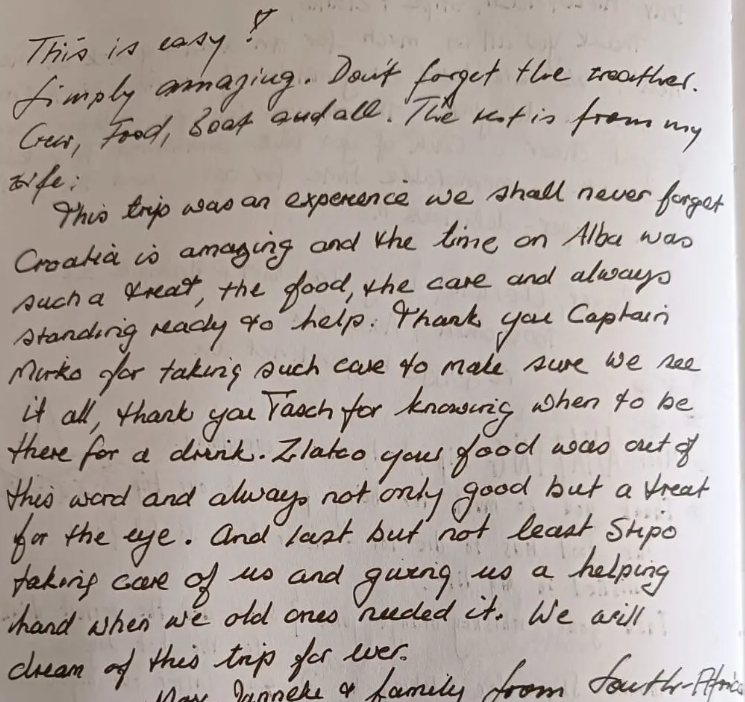 This is easy!
Simply amazing. Don't forget the weather.
Crew, Food, Boat and all. The rest is from my
wife:
This trip was an experence we shall never forget
Croatia is amazing and the time on Alba was
such a treat, the food, the care and always
standing ready to help. Thank you Captain
Mirko for taking such care to make sure we see
it all, thank you Tasch for knowing when to be
there for a drink. Zlatco your food was out of
this word and always not only good but a treat
for the eye. And last but not least Stipo
taking care of us and giving us a helping
hand when we old ones needed it. We will
dream of this trip for ever.
Janneke & family from South-Africa